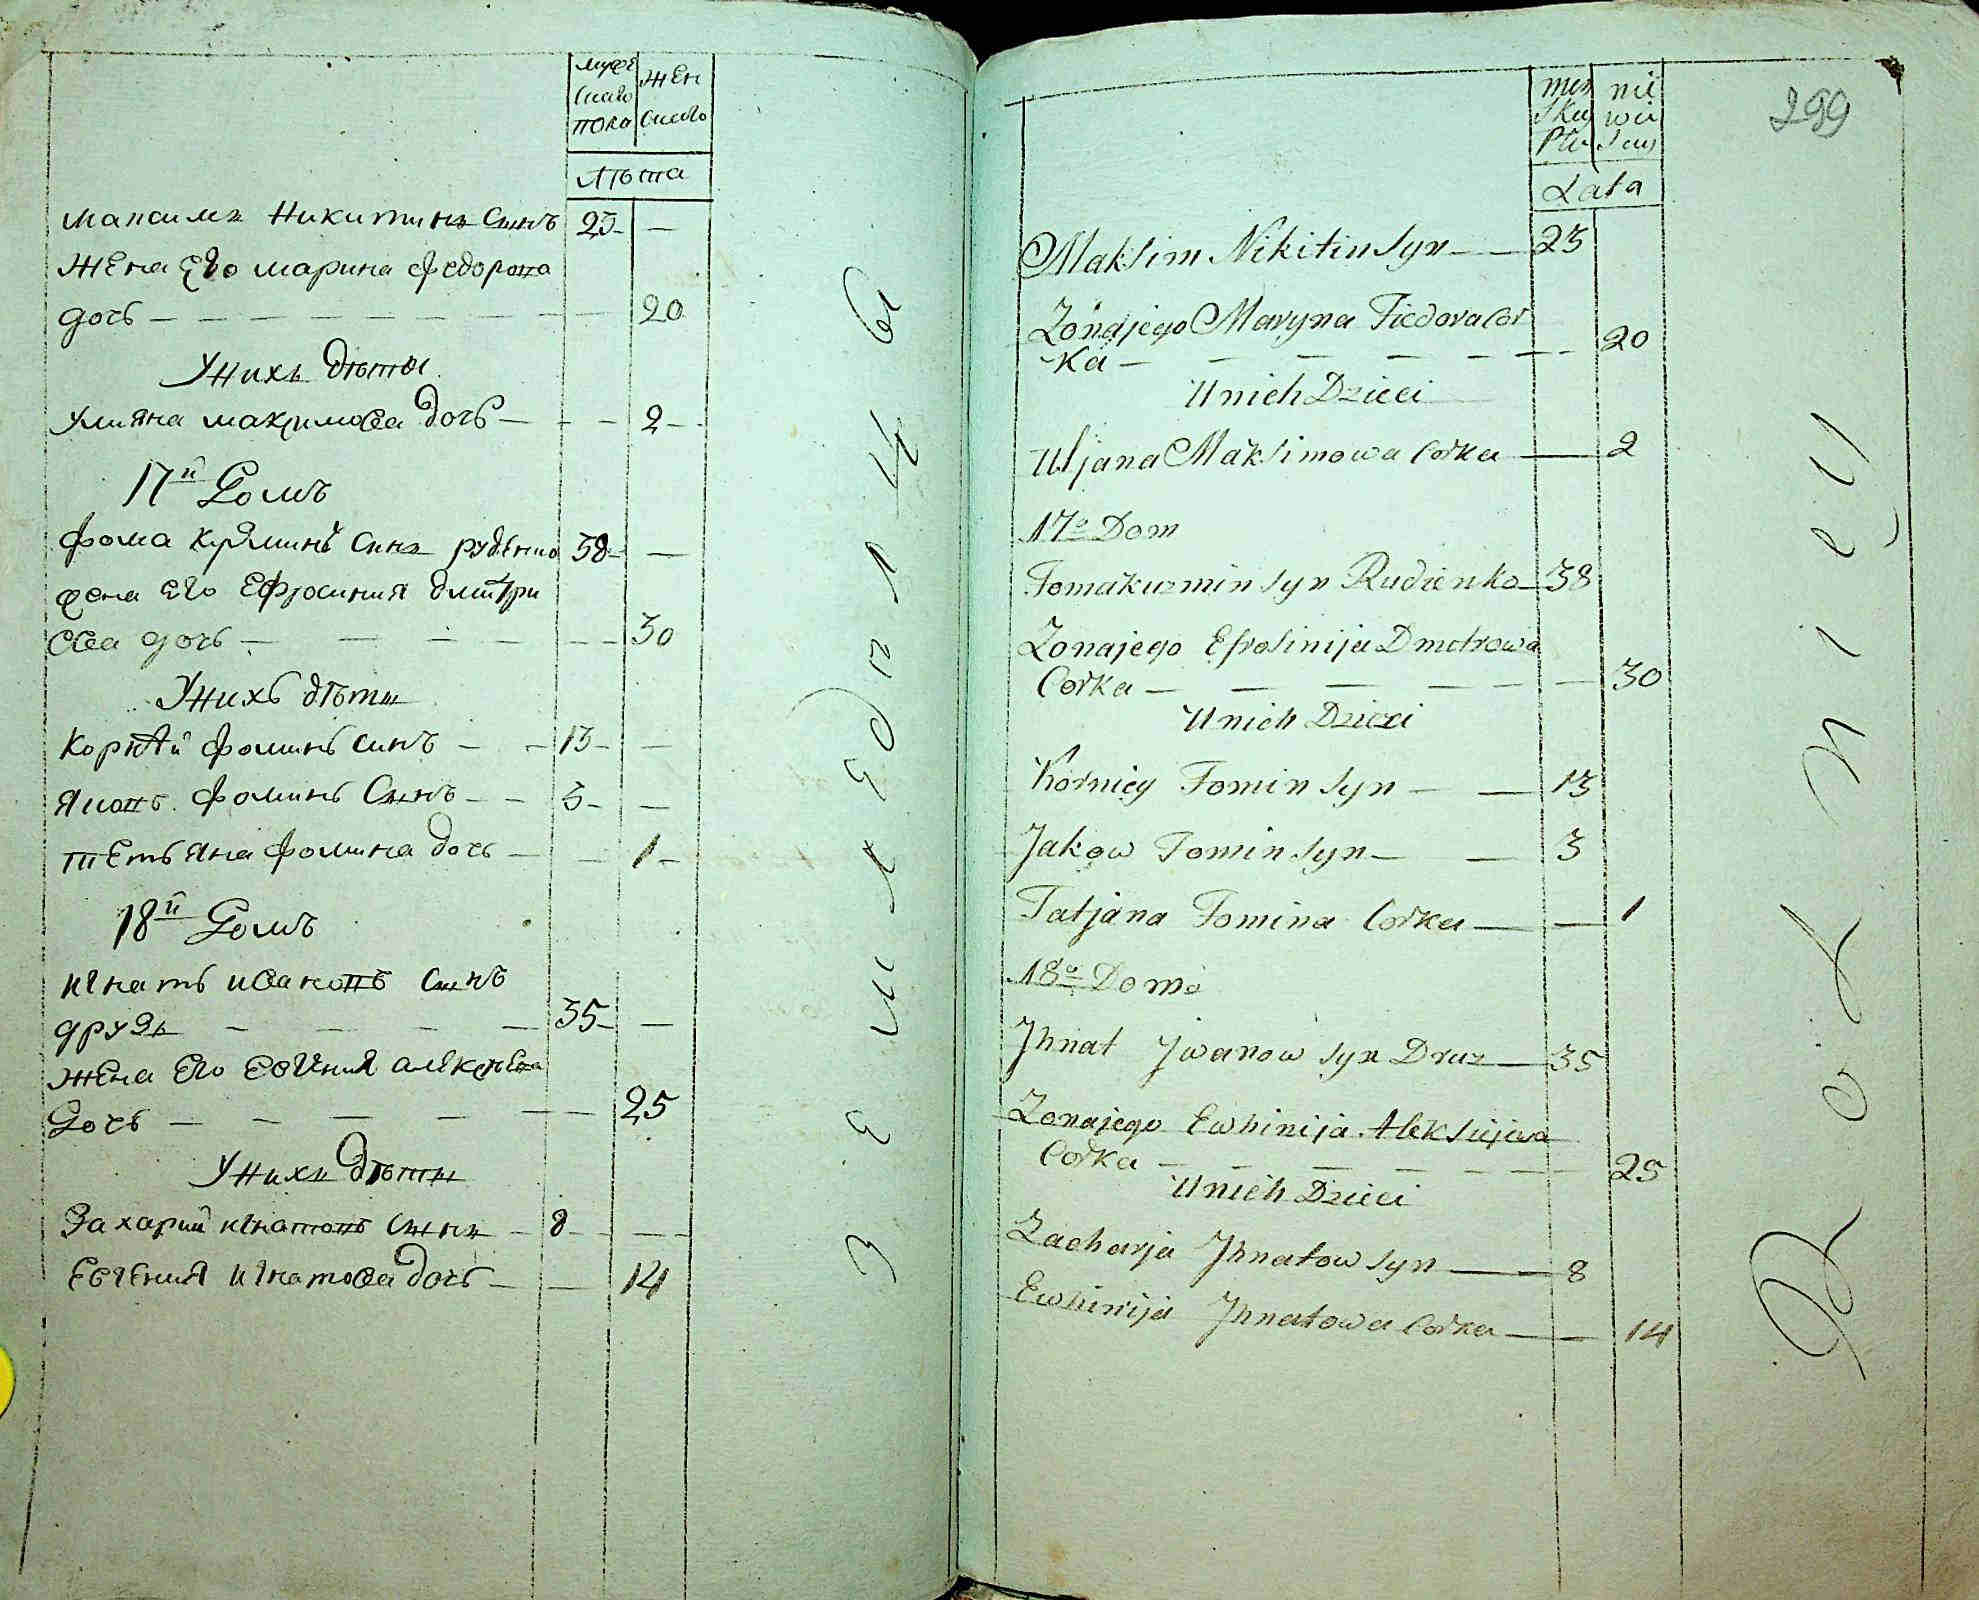 мужескаго пола
женскаго
лѣта
Максимъ Никитинъ синъ 23 —
Жена Его марина федорова
дочь — 20
У нихъ дѣти
Улияна максимова дочь — 2
17й Домъ
Фома Кузминъ синъ руденко 38 —
жена Его Ефросиния дмитри
ева дочь — 30
У нихъ дѣти
Корнѣй фоминъ синъ — 13 —
Яковъ фоминъ Синъ — 3 —
тетьяна фомина дочь — 1
18й Домъ
игнатъ ивановъ синъ
друзь — 35 —
жена Его Евгения алексѣева
Дочь — 25
У нихъ дѣти
Захарий игнатовъ синъ — 8 —
Евгения игнатова дочь — 14
земледѣлцы
299
męz
skiej
Płci
nie
wie
Lata
Maksim Nikitin syn — 23
Żona jego Maryna Fiedora Cor
ka — 20
U nich Dzieci
Uljana Maksimowa Corka — 2
17o Dom
Foma kuzmin syn Rudienko — 38
Zona jego Efrosinija Dmetrowa
Corka — 30
U nich Dzieci
Korniey Fomin syn — 13
Jakow Fomin syn — 3
Tatjana Fomina Corka — 1
18o Dom
Jhnat Jwanow syn Druz — 35
Zona jego Ewhinija Aleksiejewa
Corka — 25
U nich Dzieci
Zacharja Jhnatow syn — 8
Ewhinija Jhnatowa Corka — 14
Rolnicy